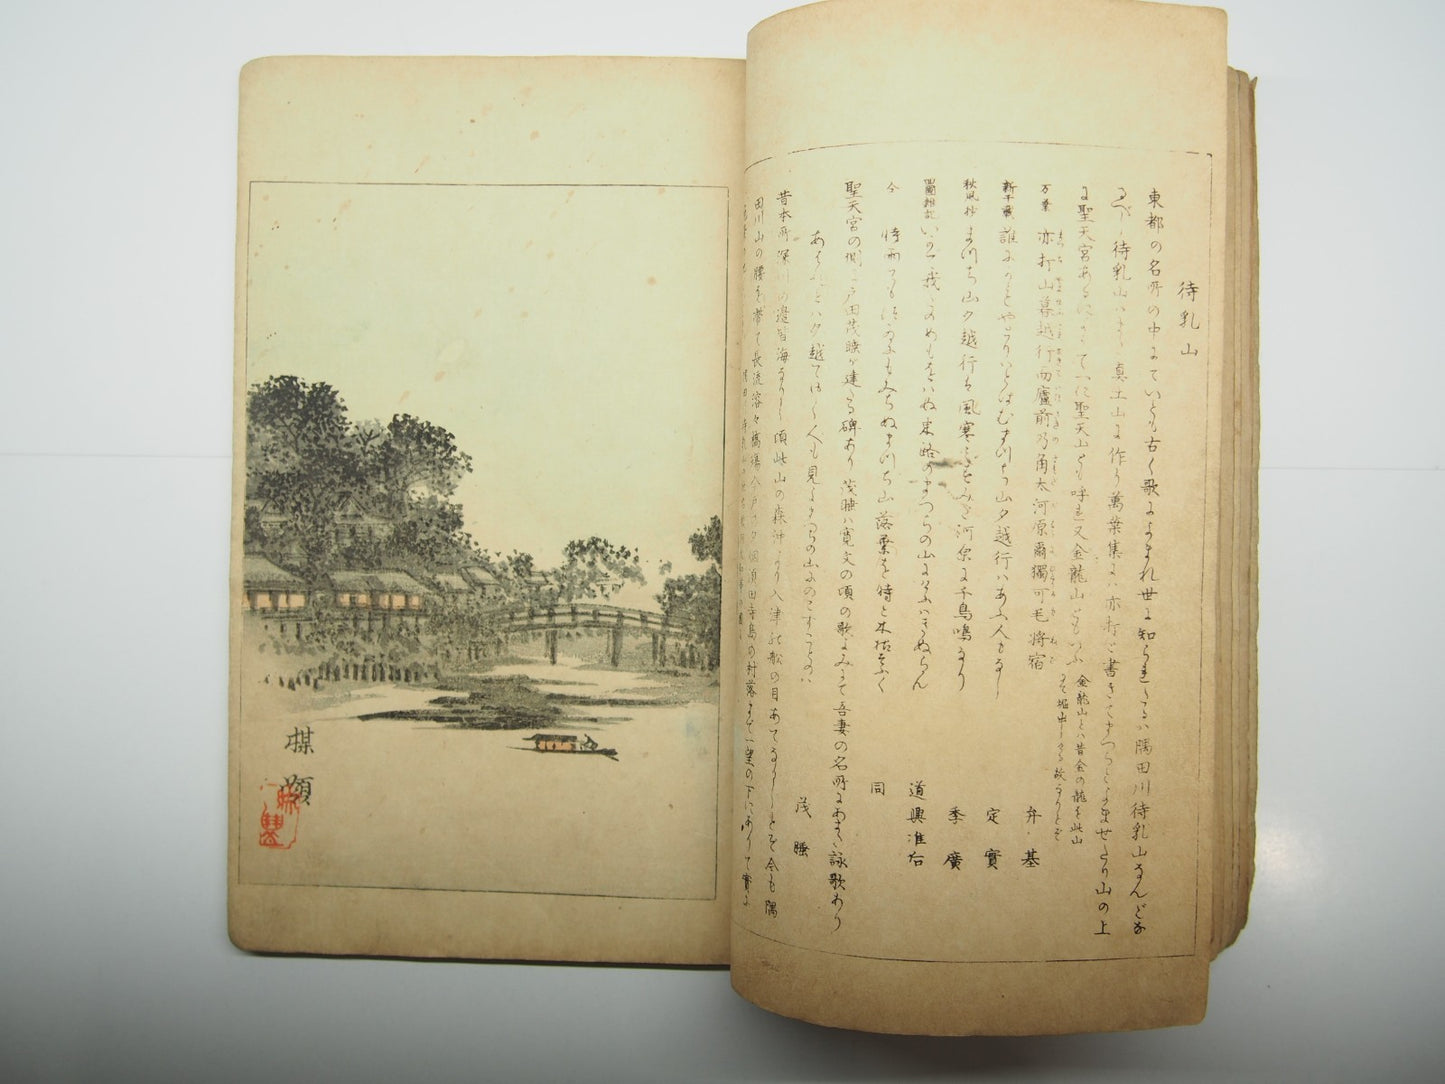 待乳山
東都の名所の中にていとも古く歌によまれ世に知られたるハ隅田川待乳山なんどな
るべし待乳山ハまた真土山に作り萬葉集にハ亦打と書きてまつちとよませたり山の上
に聖天宮あるによて一に聖天山とも呼え又金龍山ともいふ
金龍山とハ昔金の龍を此山
にて堀出したる故なりとぞ
万葉 亦打山暮越行而廬前乃角太河原爾獨可毛将宿 弁基
新千載 誰にかもやどりハとはむまつち山夕越行ハあふ人もなし 定實
秋風抄 まつち山夕越行も風寒ミすみだ河原に千鳥鳴なり 季廣
四國雑記 いかで我たのめもおかぬ東路のまつちの山にけふハきぬらん 道興准后
今 時雨ても
みちぬまつち山落葉を待と木枯そふく 同
聖天宮の側に戸田茂睡が建たる碑あり茂睡ハ寛文の頃の歌よみにて吾妻の名所にあまた詠歌あり
あはれとハ夕越てゆく人も見よまつちの山にのこすことのハ 茂睡
昔本所深川の邊皆海なりし頃此山の森沖より入津の船の目あてなりしとぞ今も隅
田川山の腰を帯て長流溶々橋場今戸
須田寺島の村落まで一望の下にありて實に
楳
頌